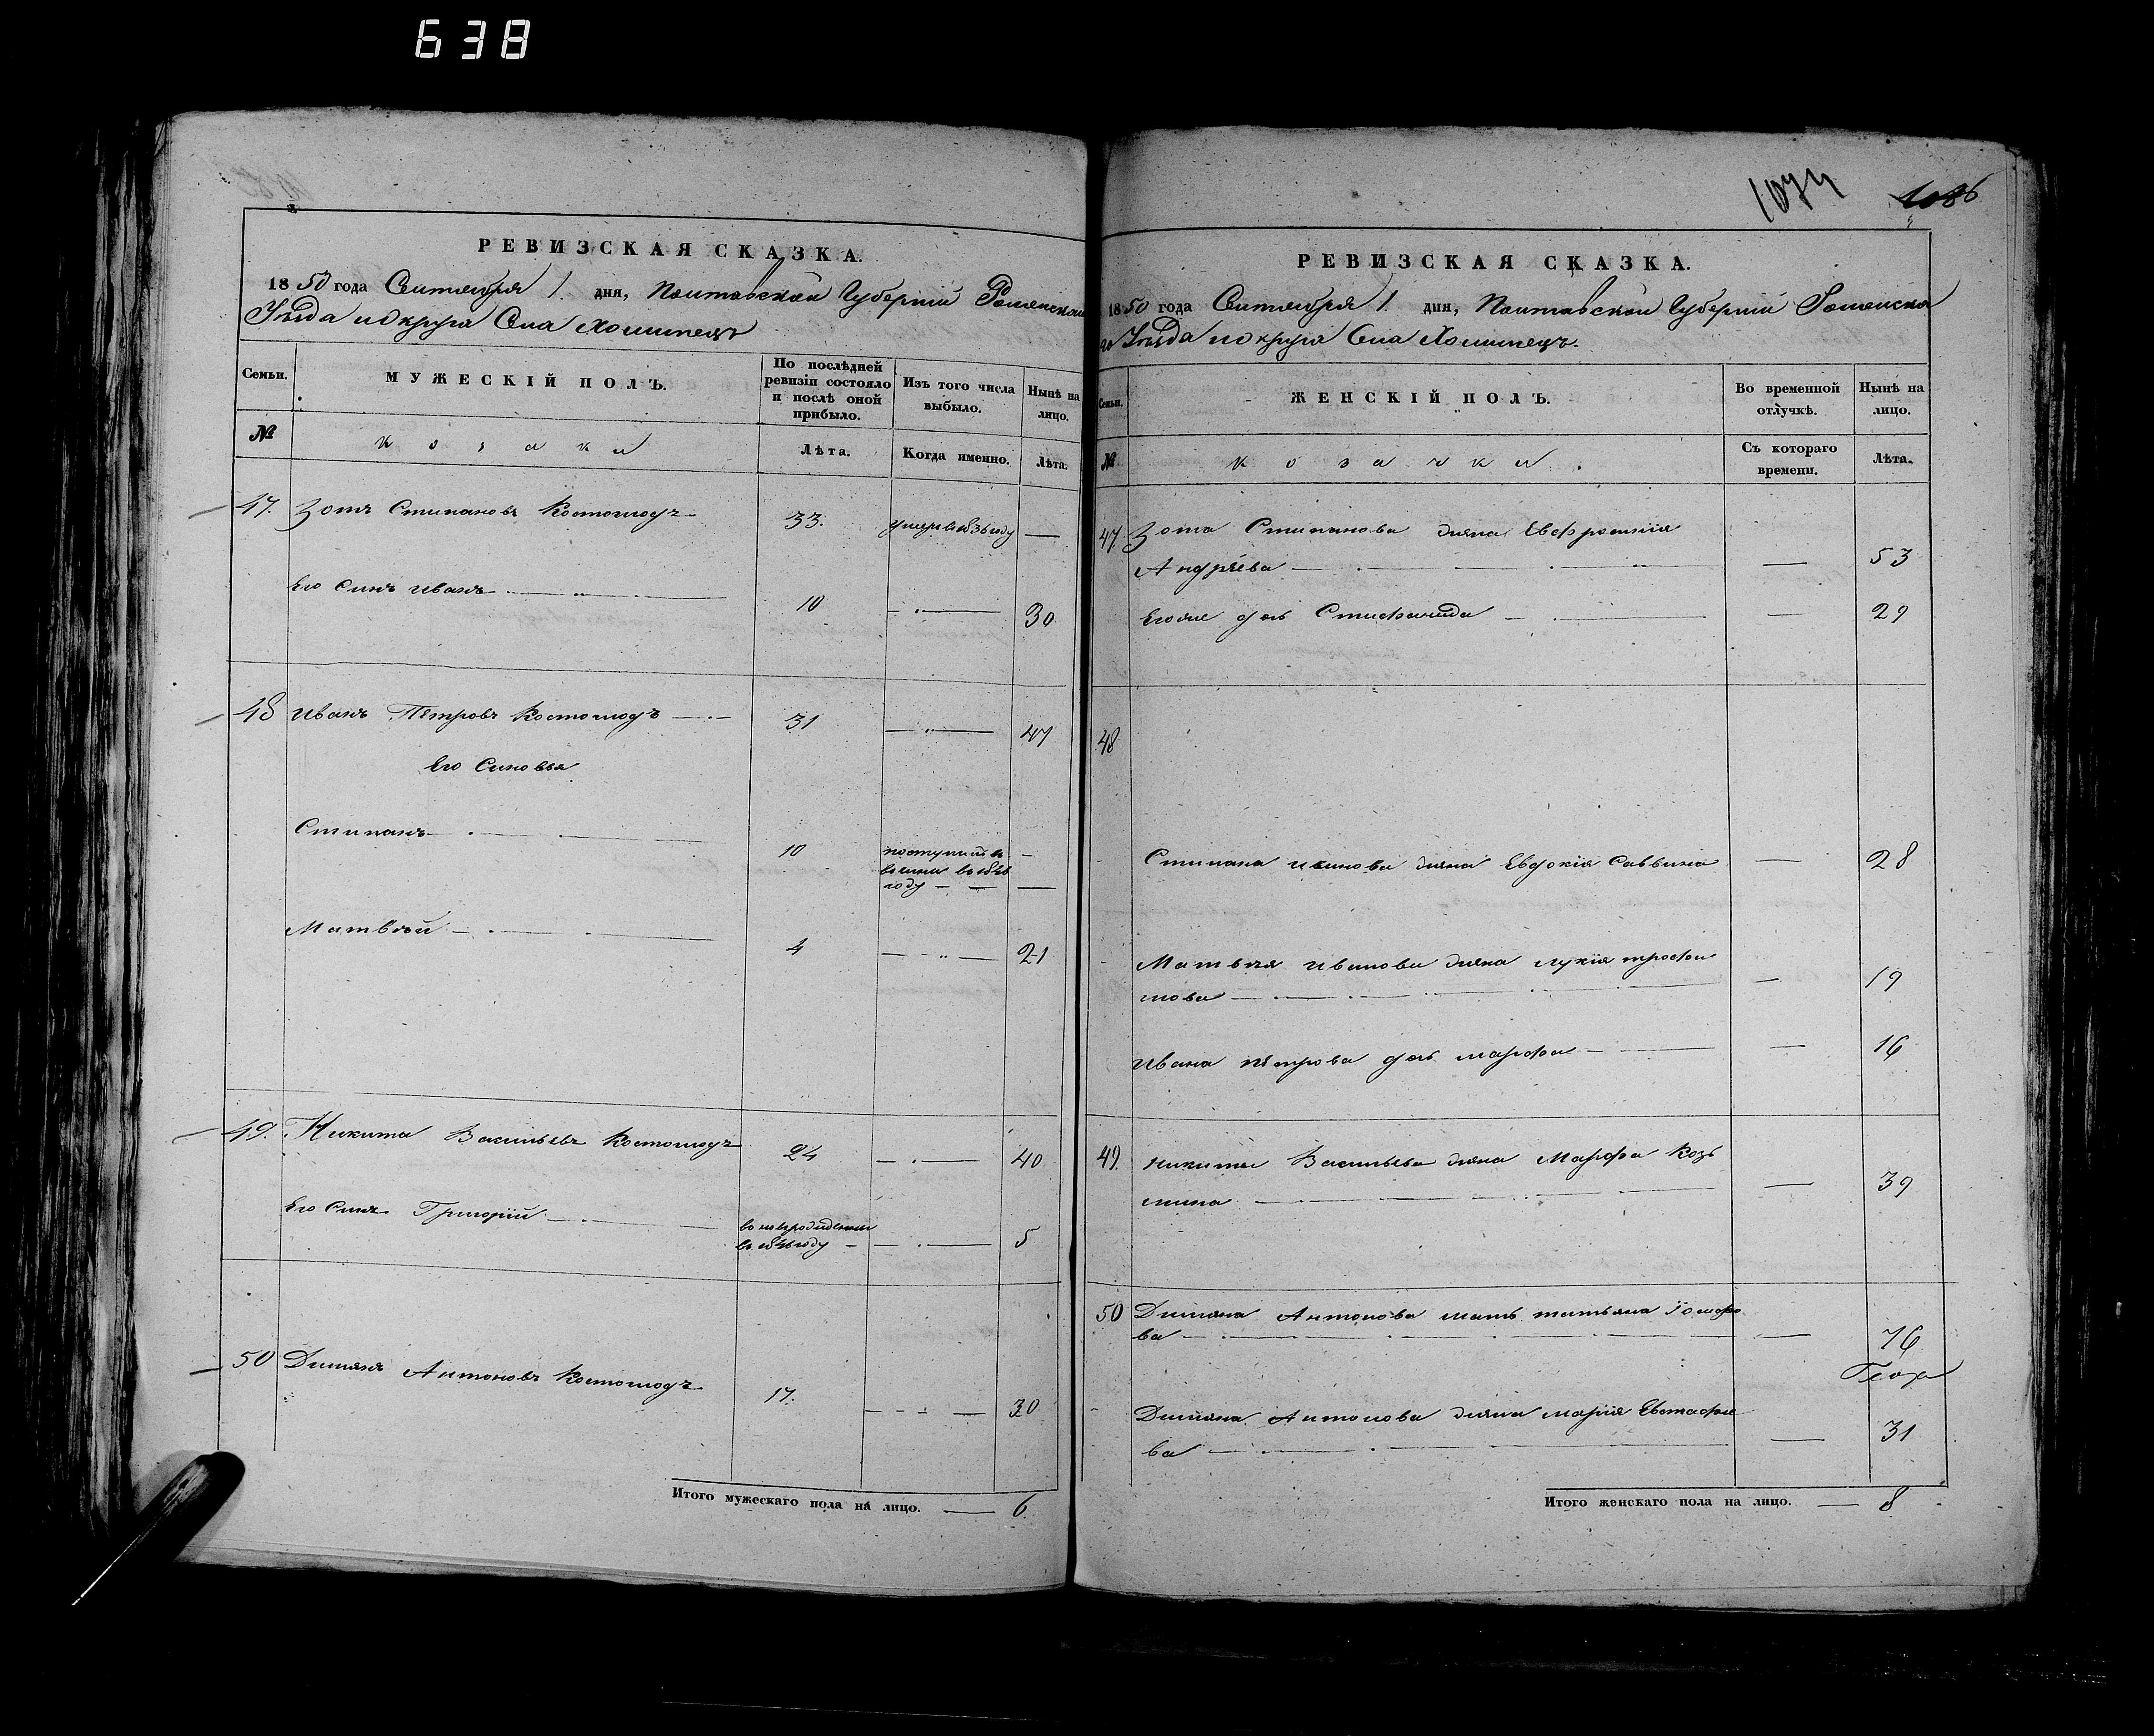 638
РЕВИЗСКАЯ СКАЗКА.
1850 года Сентября 1. дня, Полтавской Губерніи Роменскаго
Уѣзда и округа Села Хоминецъ
Семьи.
МУЖЕСКІЙ ПОЛЪ.
По послѣдней ревизіи состояло и послѣ оной прибыло.
Изъ того числа выбыло.
Нынѣ на лицо.
№
Козаки
Лѣта.
Когда именно.
Лѣта.
47. Зотъ Стипановъ Костоглодъ 33. умеръ въ 1836 году —
Его Синъ Иванъ 10 — 30
48 Иванъ Петровъ Костоглодъ 31 — 47
Его Синовья
Стипанъ 10 поступилъ въ
году —
Матвѣй 4 — 21
49. Никита Васильевъ Костоглодъ 24 — 40
Его Синъ Григорій вновьрожденный
въ 1845 году — 5
50 Димянъ Антоновъ Костоглодъ 17. — 30
Итого мужескаго пола на лицо. — 6
1074 1086
РЕВИЗСКАЯ СКАЗКА.
1850 года Сентября 1. дня, Полтавской Губерніи Роменска
го Уѣзда и округа Села Хоминецъ.
Семьи.
ЖЕНСКІЙ ПОЛЪ.
Во временной отлучкѣ.
Нынѣ на лицо.
№
Козачки.
Съ котораго времени.
Лѣта.
47. Зота Стипанова жена Евфросинія
Андрѣева — 53
Егоже дочь Стифанида — 29
48
Стипана Иванова жена Евдокія Саввина — 28
Матвѣя Иванова жена Лукія Трофи
мова — 19
Ивана Петрова дочь Марфа — 16
49. Никиты Васильева жена Марфа Козь
мина — 39
50 Димяна Антонова мать Татьяна
ва — 76
Димяна Антонова жена Марія Евстафіе
ва — 31
Итого женскаго пола на лицо. — 8